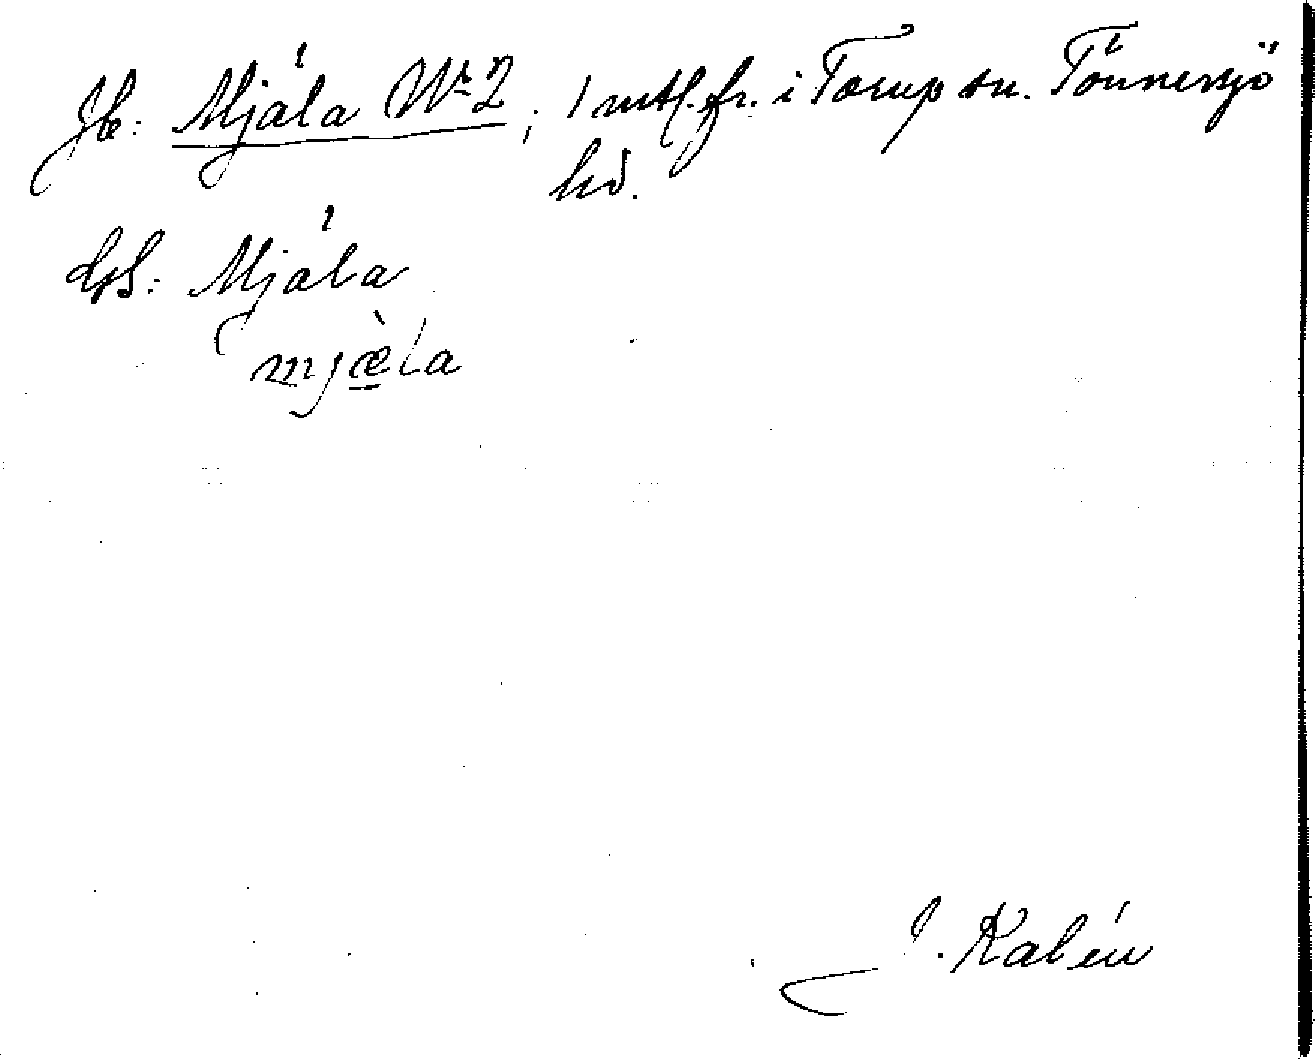 Jb: Mjäla Nr 2; 1 mtl. fr. i Torup sn. Tönnersjö
hd.
Gs: Mjäla
mjæ̀la
J. Kalén